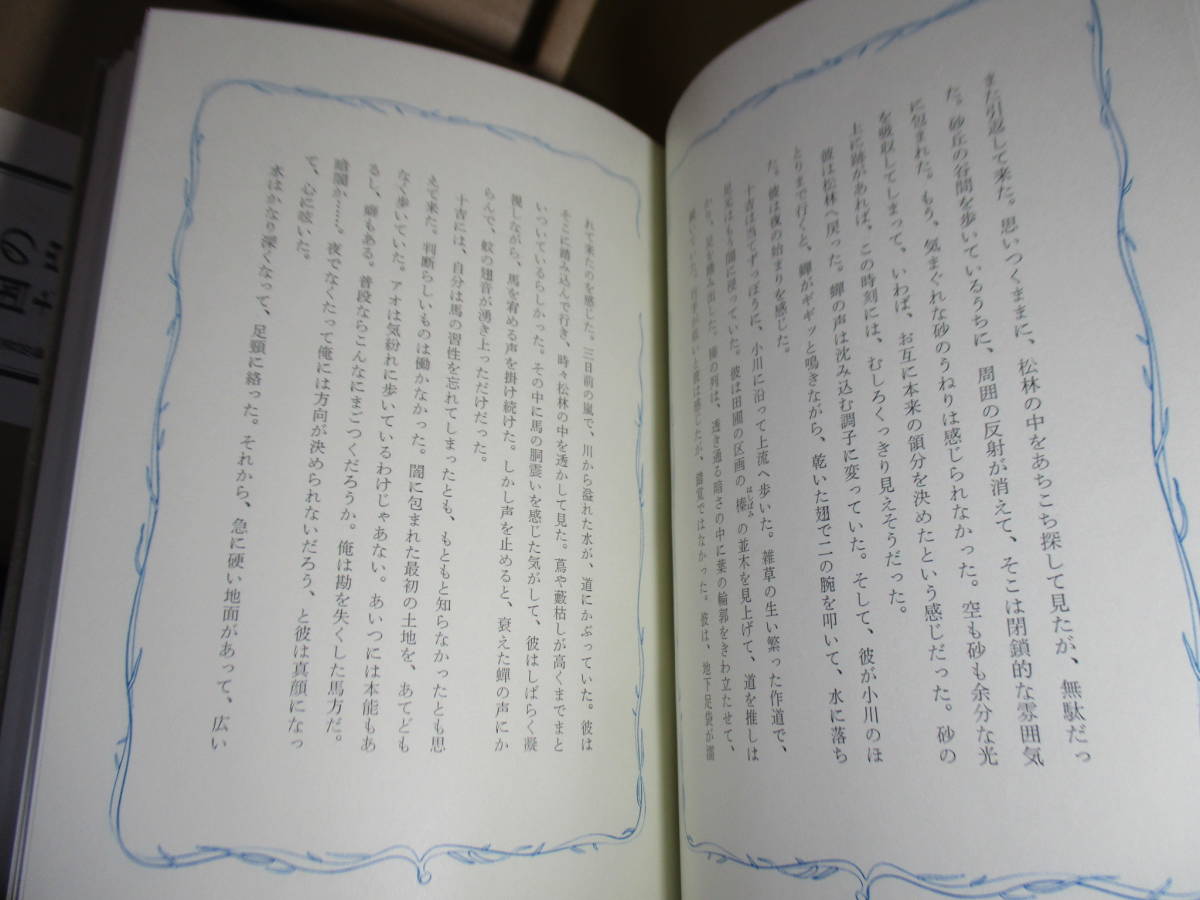 また引返して来た。思いつくままに、松林の中をあちこち探して見たが、無駄だっ
た。砂丘の谷間を歩いているうちに、周囲の反射が消えて、そこは閉鎖的な雰囲気
に包まれた。もう、気まぐれな砂のうねりは感じられなかった。空も砂も余分な光
を吸収してしまって、いわば、お互に本来の領分を決めたという感じだった。砂の
上に跡があれば、この時刻には、むしろくっきり見えそうだった。
彼は松林へ戻った。蟬の声は沈み込む調子に変っていた。そして、彼が小川のほ
とりまで行くと、蟬がギギッと鳴きながら、乾いた翅で二の腕を叩いて、水に落ち
た。彼は夜の始まりを感じた。
十吉は当てずっぽうに、小川に沿って上流へ歩いた。雑草の生い繁った作道で、
足元はもう闇に浸っていた。彼は田圃の区画の榛はしばみの並木を見上げて、道を推しは
かり、足を踏み出した。榛の列は、透き通る暗さの中に葉の輪郭をきわ立たせて、
続いていた。行手が赤いと彼は感じたが、錯覚ではなかった。彼は、地下足袋が濡
れて来たのを感じた。三日前の嵐で、川から溢れた水が、道にかぶっていた。彼は
そこに踏み込んで行き、時々松林の中を透かして見た。蔦や藪枯しが高くまでまと
いついているらしかった。その中に馬の胴震いを感じた気がして、彼はしばらく凝
視しながら、馬を宥める声を掛け続けた。しかし声を止めると、衰えた蟬の声にか
らんで、蚊の翅音が湧き上っただけだった。
十吉には、自分は馬の習性を忘れてしまったとも、もともと知らなかったとも思
えて来た。判断らしいものは働かなかった。闇に包まれた最初の土地を、あてども
なく歩いていた。アオは気紛れに歩いているわけじゃあない。あいつには本能もあ
るし、癖もある。普段ならこんなにまごつくだろうか。俺は勘を失くした馬方だ。
暗闇か……。夜でなくたって俺には方向が決められないだろう、と彼は真顔になっ
て、心に呟いた。
水はかなり深くなって、足頸に絡った。それから、急に硬い地面があって、広い